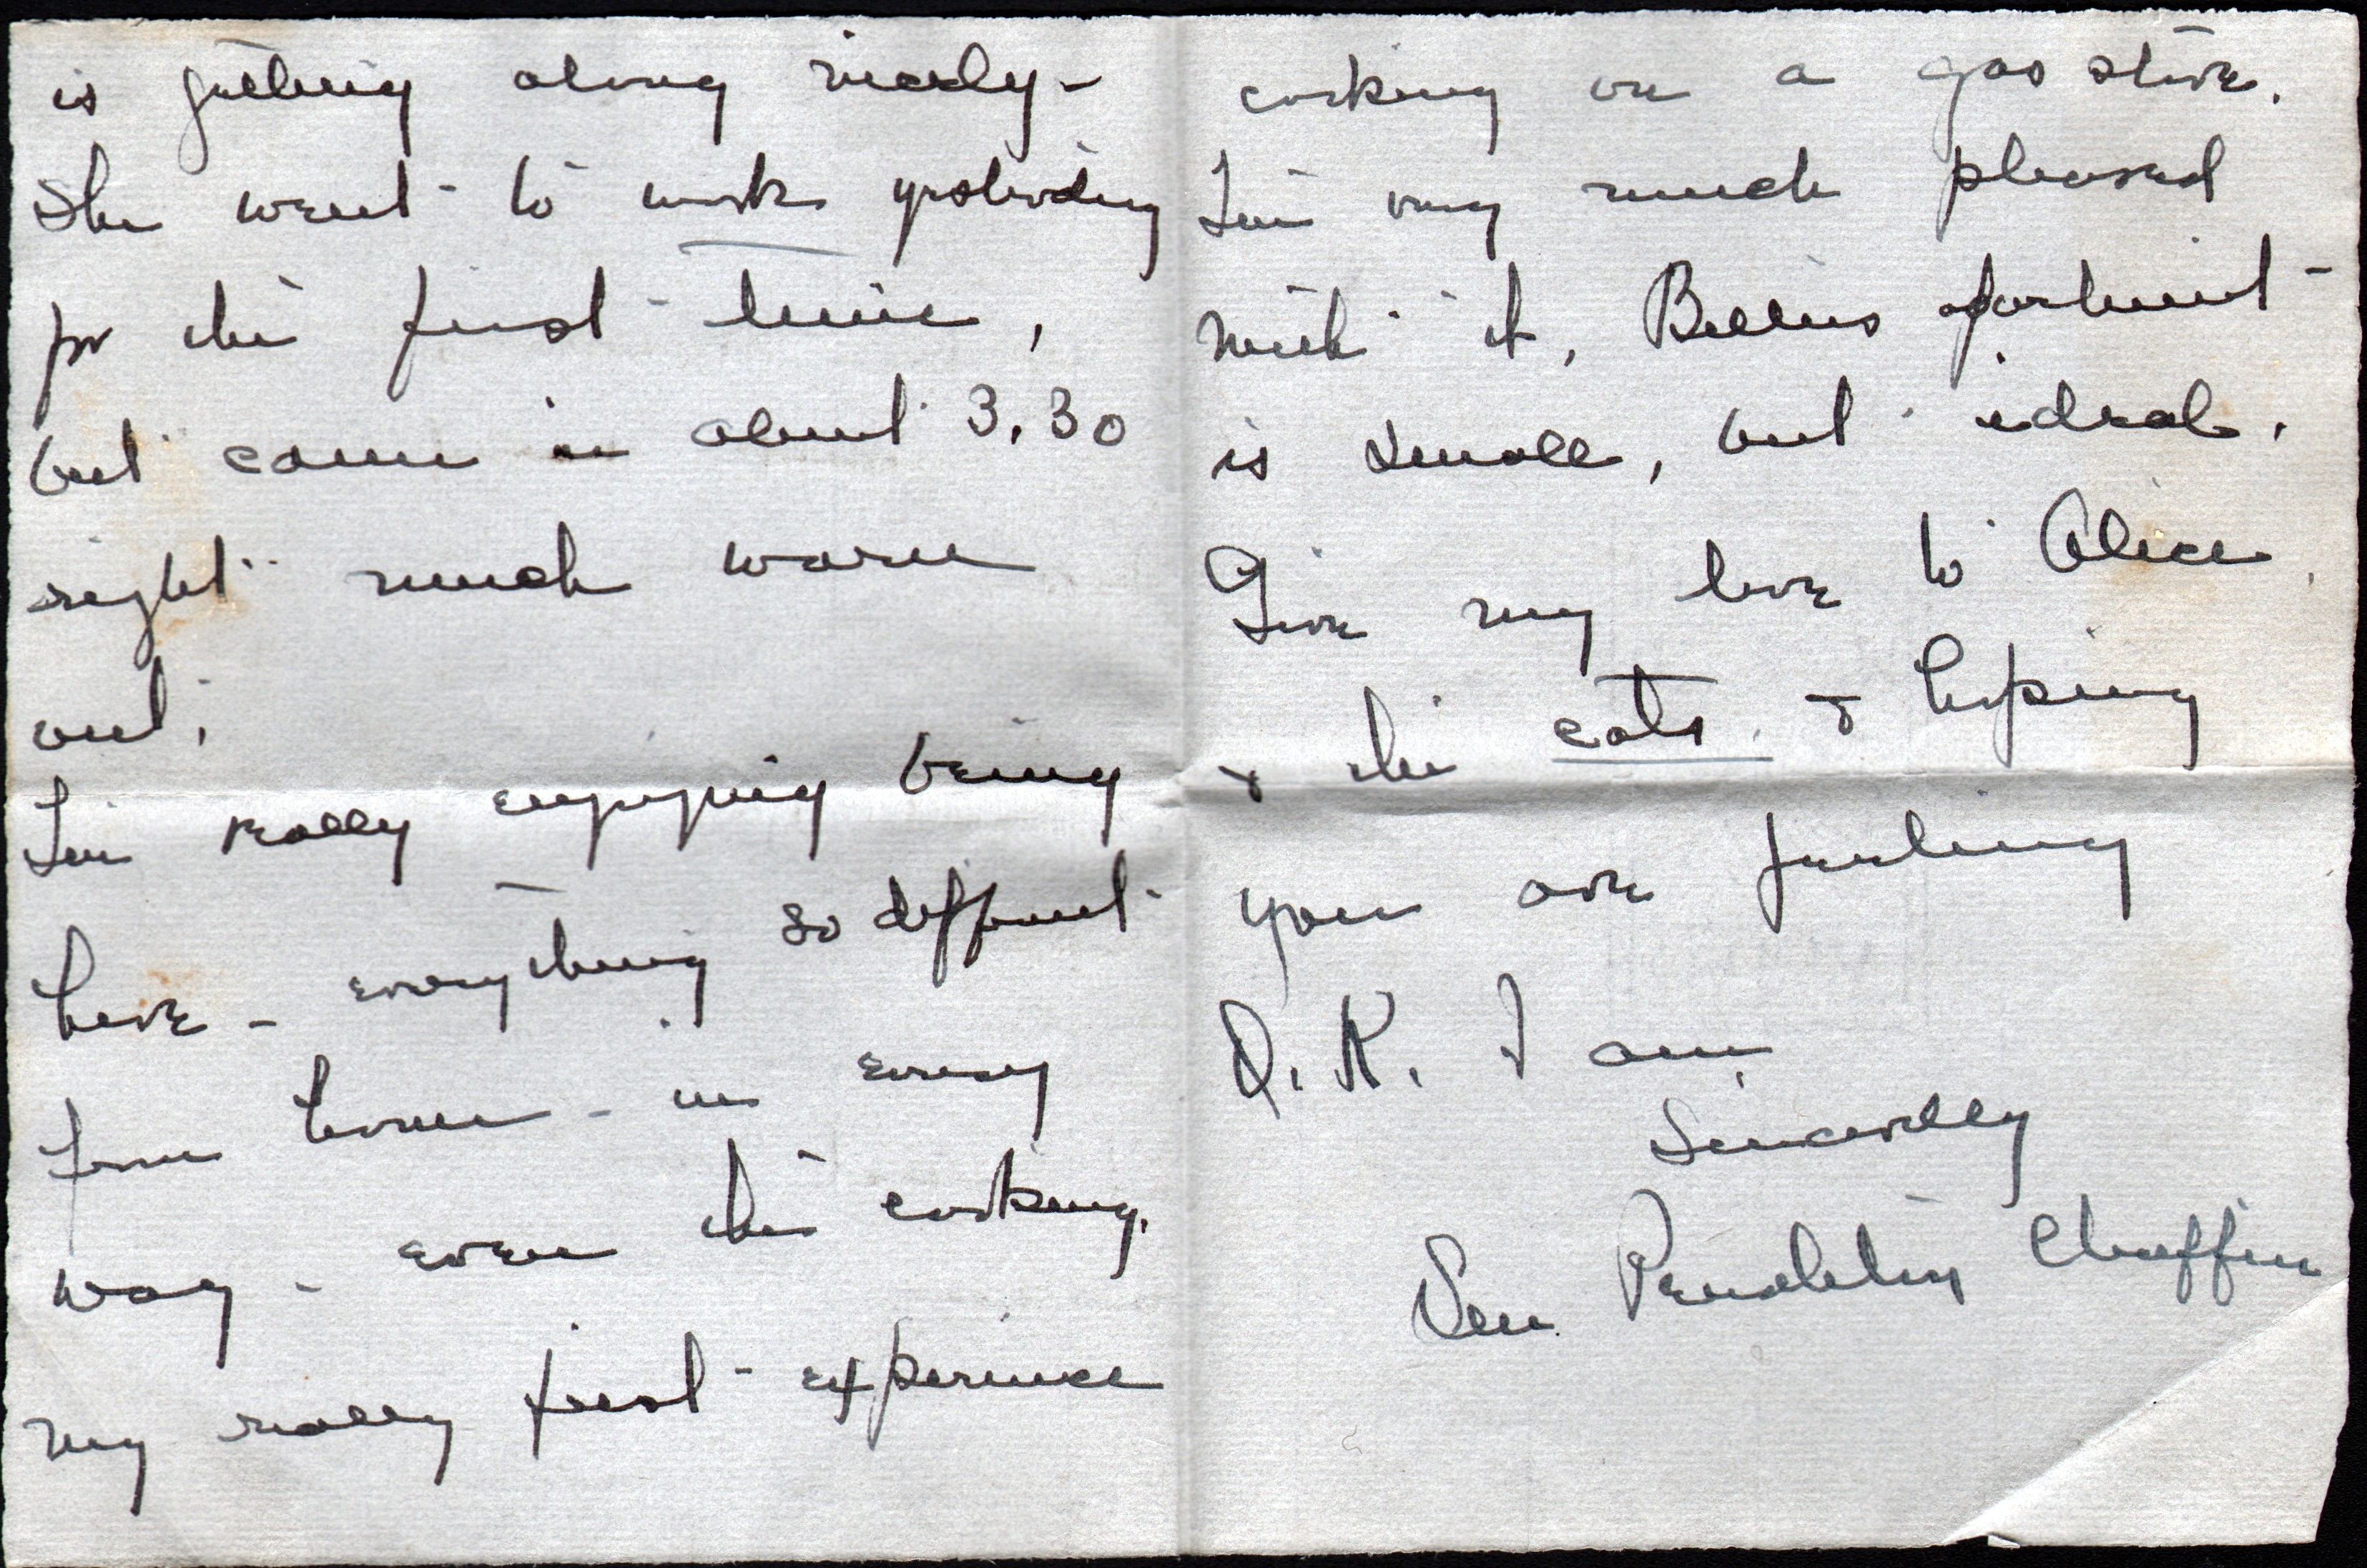 is getting along nicely -
She went to work yesterday
for the first time,
but came in about 3.30
right much worn
out.
I'm really enjoying being
here - everything so different
from home - in every
way - even the cooking.
my really first experience
cooking on a gas stove.
I'm very much pleased
with it, Billie's apartment
is small, but ideal.
Give my love to Alice.
& the cats & hoping
you are feeling
O.K. I am,
Sincerely
Sue Pendleton Chaffin